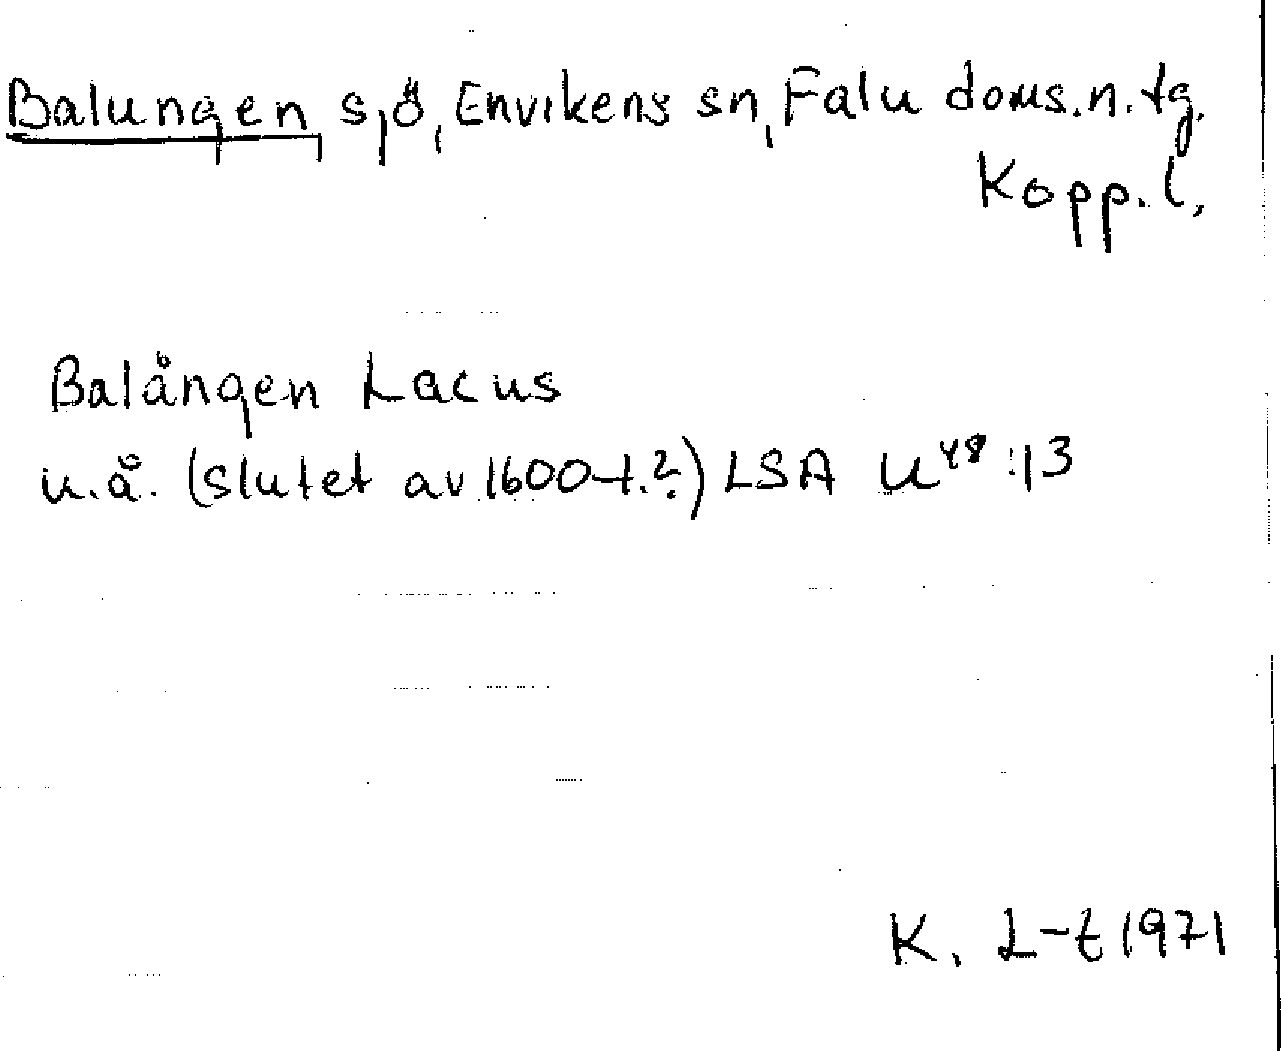 Balungen, s,ö, Envikens sn, Falu doms.n.tg.
Kopp.l,
Balången Lacus
u.å. (slutet av 1600-t.?) LSA U48:13
K. L-t 1971